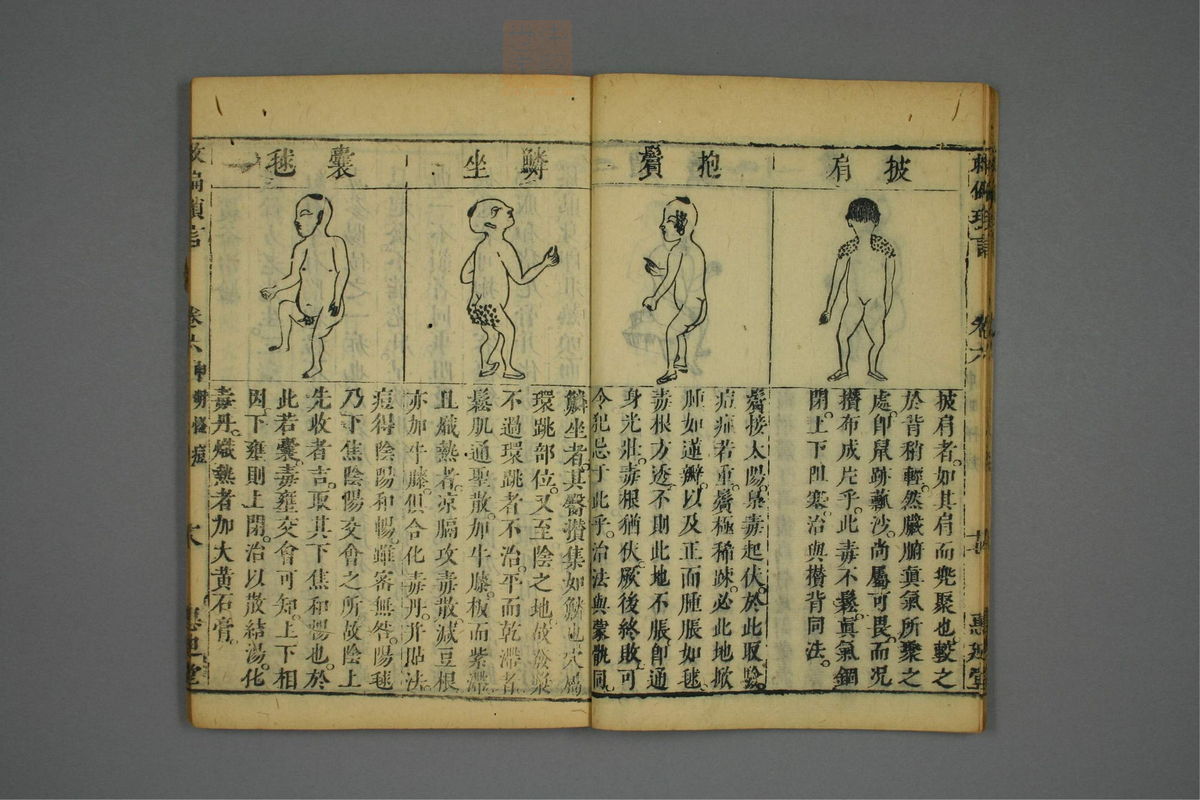 救偏瑣言
卷六
披肩
披肩者如其肩而兜聚也較之
於背稍輕然臟腑眞氣所聚之
處卽鼠跡沙尚屬可畏而况
攢布成片乎此毒不鬆眞氣錮
閉上下阻塞治與攢背同法
抱鬢
鬢接太陽梟毒起伏於此取驗
痘症若重鬢極稀疎必此地掀
腫如蓮瓣以及正面腫脹如毬
毒根方透不則此地不脹卽通
身光壯毒根猶伏厥後終敗可
令犯忌于此乎治法與蒙同
鱗坐
鱗坐者其臀攢集如鱗也穴爲
環跳部位又至陰之地故發漿
不過環跳者不治平而乾滯者
鬆肌通聖散加牛膝板而紫滯
且熾熱者凉膈攻毒散減豆根
亦加牛膝俱合化毒丹并貼法
囊毬
痘得陰陽和暢雖密無咎陽毬
乃下焦陰陽交會之所故陰上
先收者吉取其下焦和暢也於
此若囊毒壅交會可知上下相
因下壅則上閉治以散結湯化
毒丹熾熱者加大黃石膏
救偏瑣言
卷六